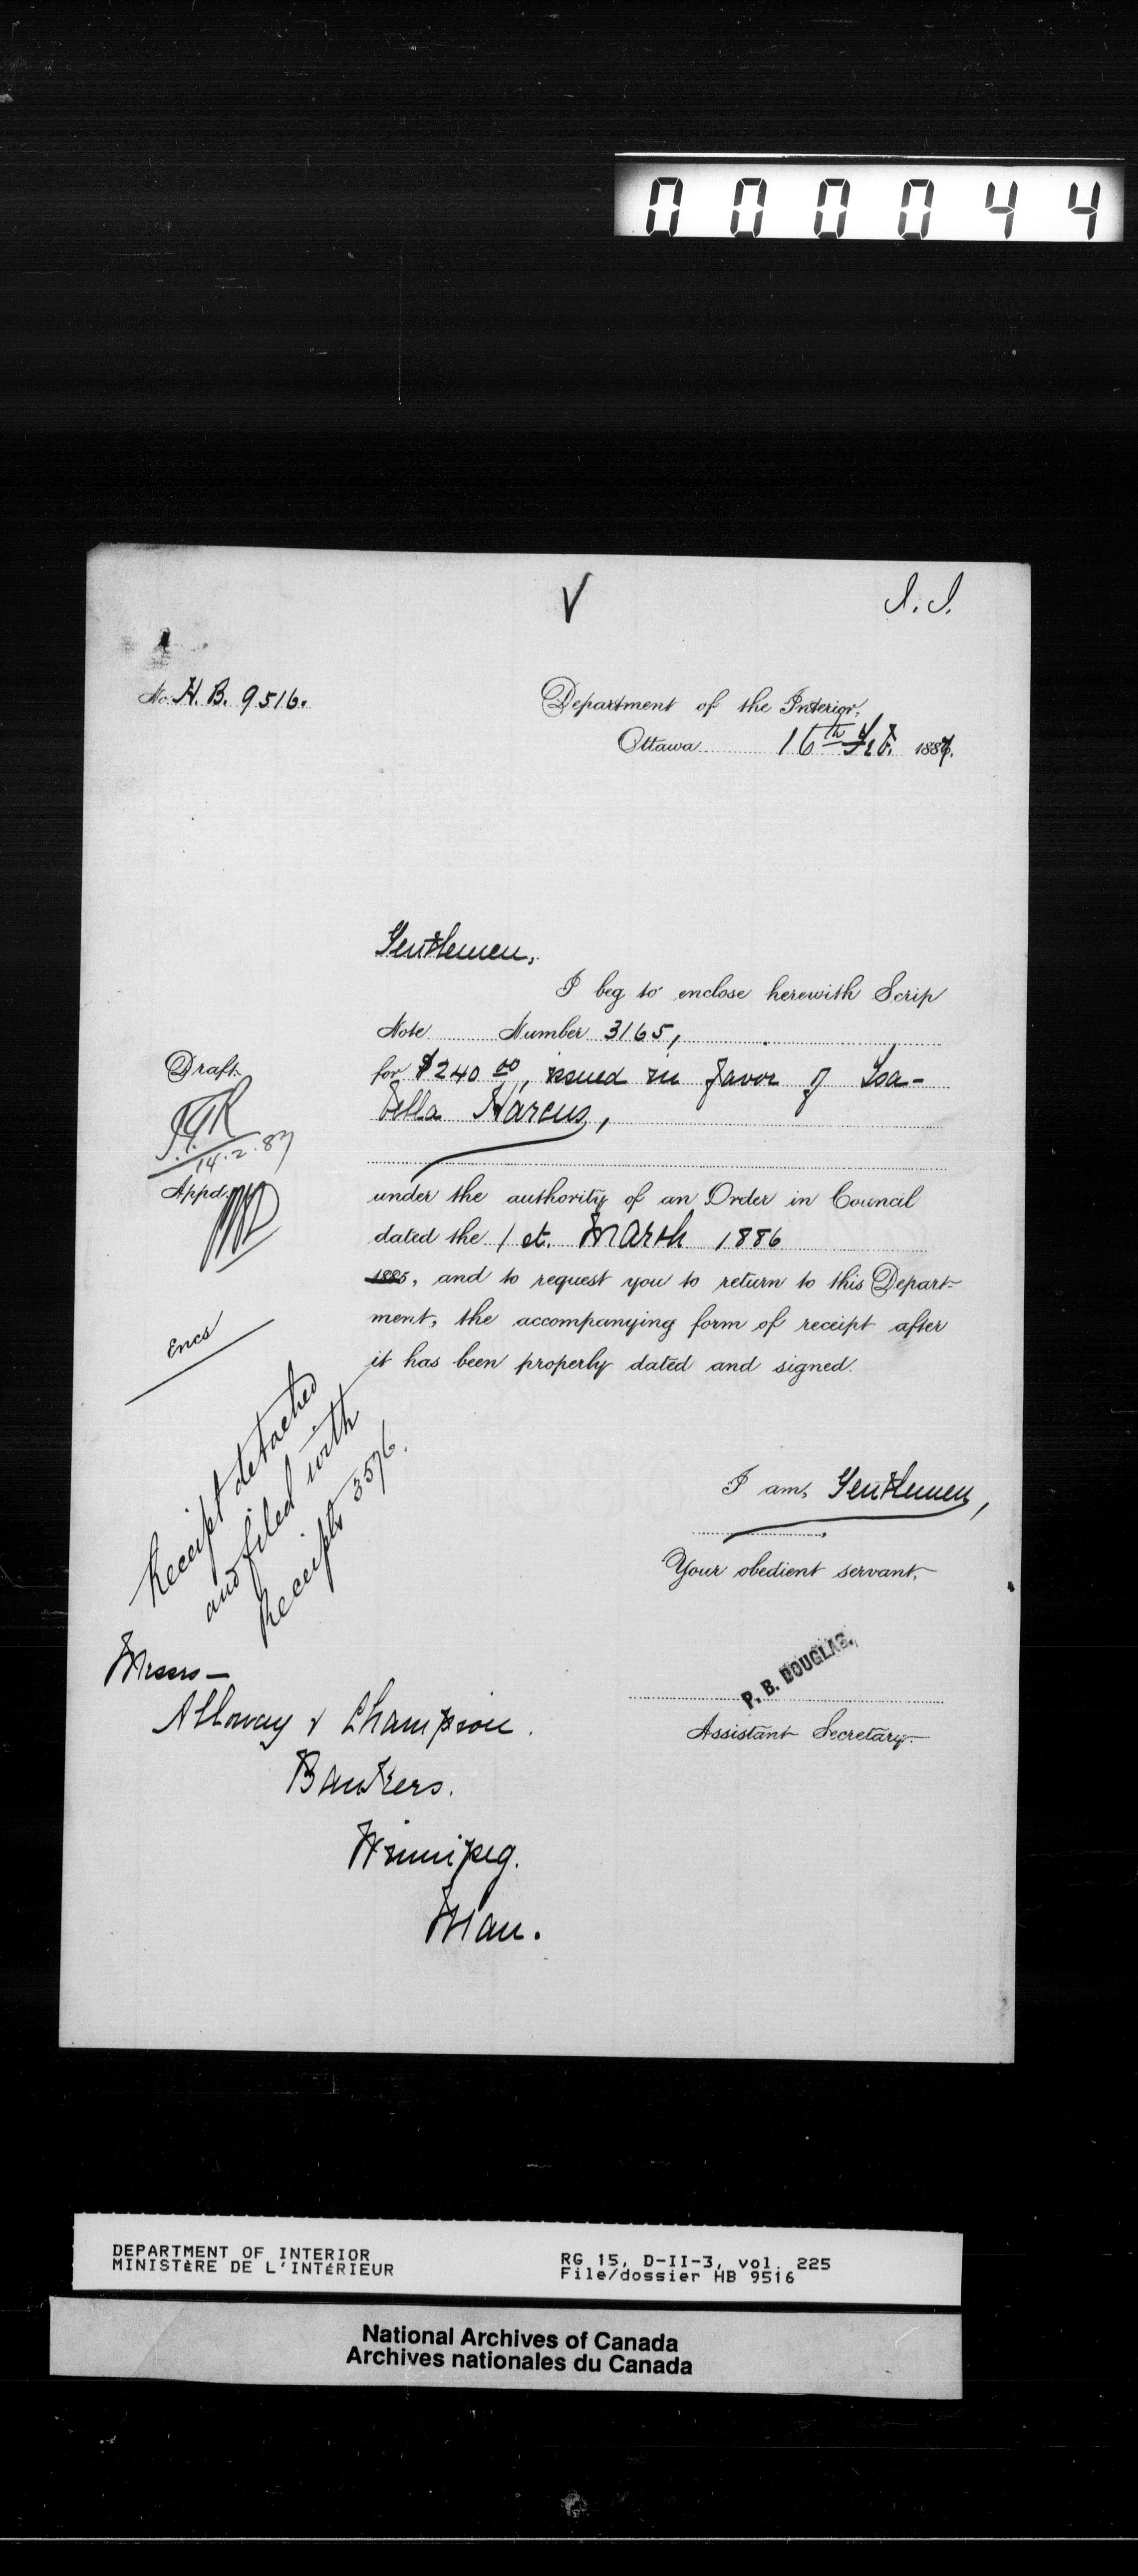 000044
V
I. I.
No. H. B. 9516.
Department of the Interior,
Ottawa 16th Feb. 1887.
Gentlemen,
I beg to enclose herewith Scrip
Note Number 3165,
for $240 00, issued in favor of Isa-
bella Harcus,
Draft
14.2.87
Appd.
under the authority of an Order in Council
dated the 1st. March 1886
1885, and to request you to return to this Depart-
ment, the accompanying form of receipt after
it has been properly dated and signed.
Encs
Receipt detached
and filed with
Receipts 3576.
I am, Gentlemen,
Your obedient servant,
P. B. DOUGLAS.
Assistant Secretary.
Messrs —
Alloway & Champion.
Bankers.
Winnipeg.
Man.
DEPARTMENT OF INTERIOR
MINISTÈRE DE L'INTÉRIEUR
RG 15, D-II-3, vol. 225
File/dossier HB 9516
National Archives of Canada
Archives nationales du Canada